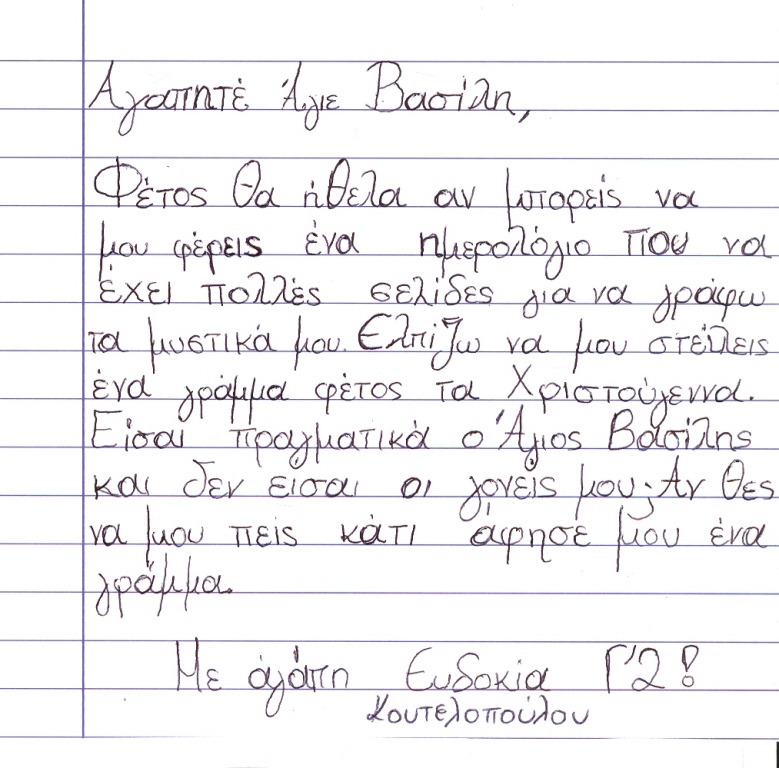 Αγαπητέ Άγιε Βασίλη,
Φέτος θα ήθελα αν μπορείς να
μου φέρεις ένα ημερολόγιο που να
έχει πολλές σελίδες για να γράφω
τα μυστικά μου. Ελπίζω να μου στείλεις
ένα γράμμα φέτος τα Χριστούγεννα.
Είσαι πραγματικά ο Άγιος Βασίλης
και δεν εισαι οι γονείς μου; Αν θες
να μου πεις κάτι άφησέ μου ένα
γράμμα.
Με αγάπη Ευδοκία Γ'2!
Κουτελοπούλου